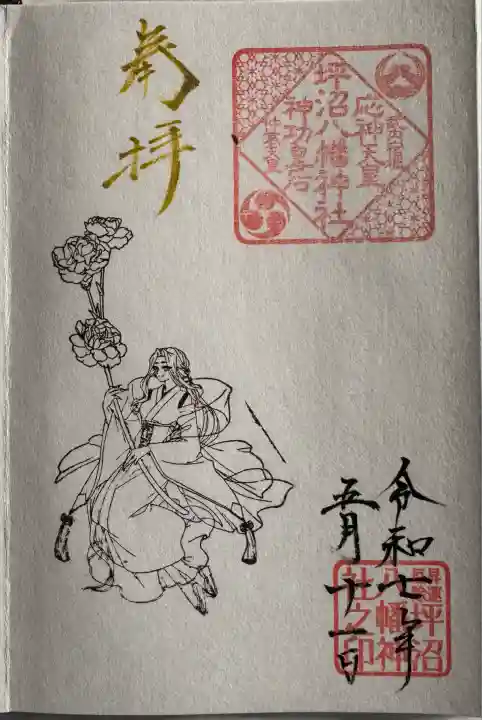 奉拝
坪沼八幡神社
応神天皇
神功皇后
仲哀天皇
令和七年
五月十一日
開運
昇運
坪沼
八幡神
社之印